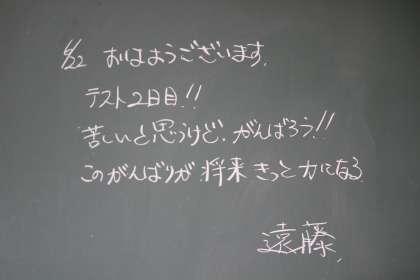 6/22 おはようございます.
テスト2日目!!
苦しいと思うけど、がんばろう!!
このがんばりが将来きっと力になる
遠藤.